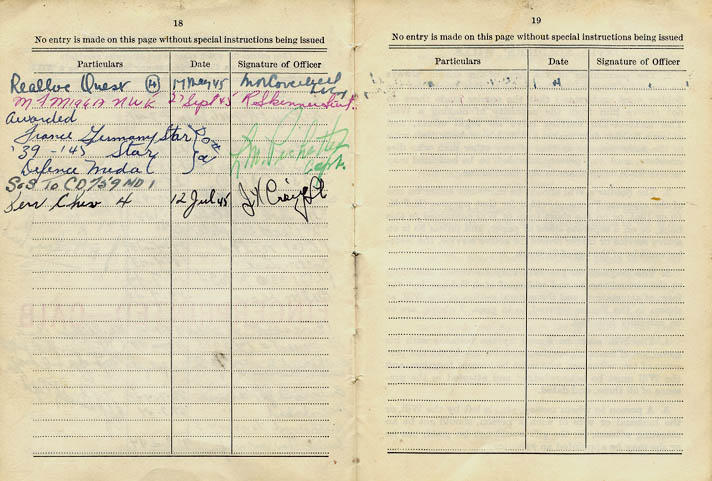 18
No entry is made on this page without special instructions being issued
Particulars Date Signature of Officer
Realloc Quest (H) 17 May 45
M F M196A NWE 27 Sept 45 R Skinner Capt.
Awarded
France Germany Star
'39 - '45 Star
Defence Medal Capt.
SoS To CD 739 MD 1
Serv Chev 4 12 Jul 45
19
No entry is made on this page without special instructions being issued
Particulars Date Signature of Officer